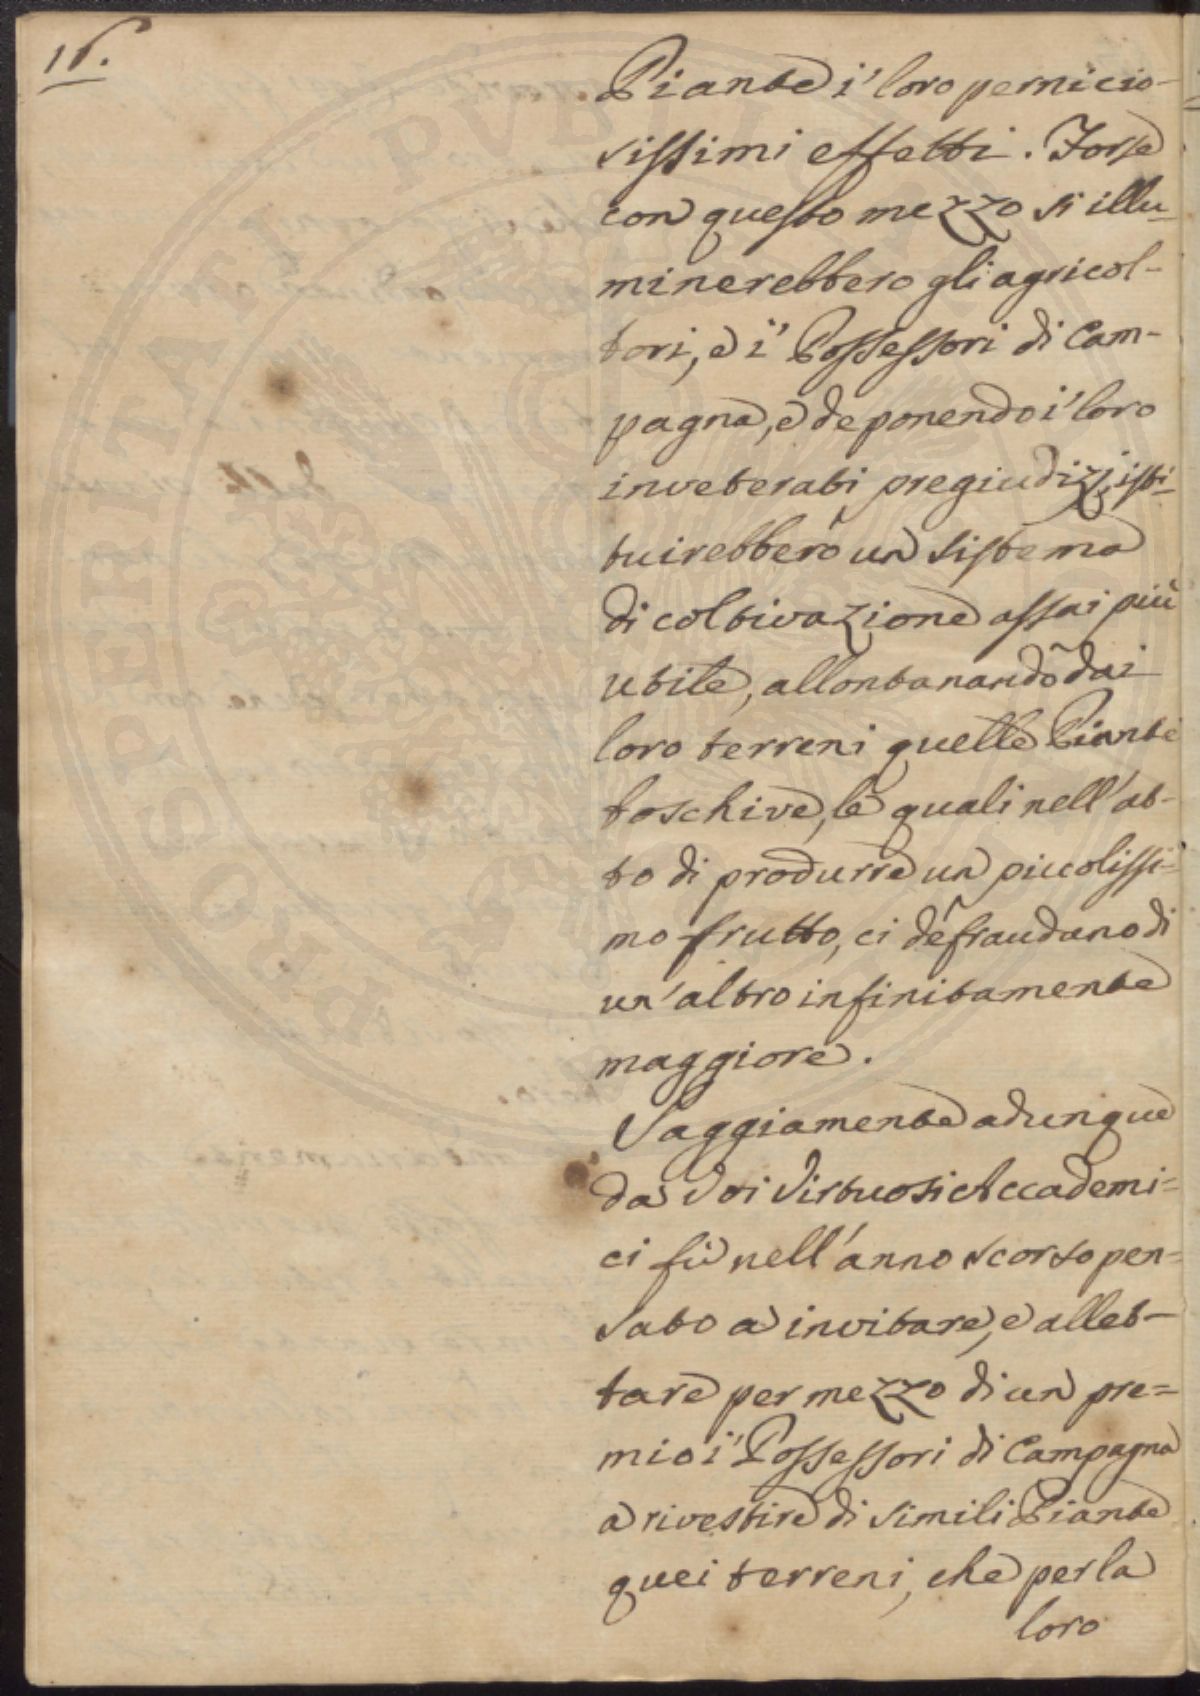 16.
Piante i' loro pernicio-
sissimi effetti. Forse
con questo mezzo si illu-
minerebbero gli agricol-
tori, e i' Possessori di Cam-
pagna, e deponendo i' loro
inveterati pregiudizj, isti-
tuirebbero un sistema
di coltivazione assai più
utile, allontanando dai
loro terreni quelle Piante
boschive, le quali nell'at-
to di produrre un piccolissi-
mo frutto, ci defraudano di
un'altro infinitamente
maggiore.
Saggiamente adunque
da Voi Virtuosi Accademi=
ci fù nell'anno scorso pen=
sato a invitare, e allet-
tare per mezzo di un pre=
mio i' Possessori di Campagna
a rivestire di simili Piante
quei terreni, che per la
loro
PROSPERITATI PVBLICAE